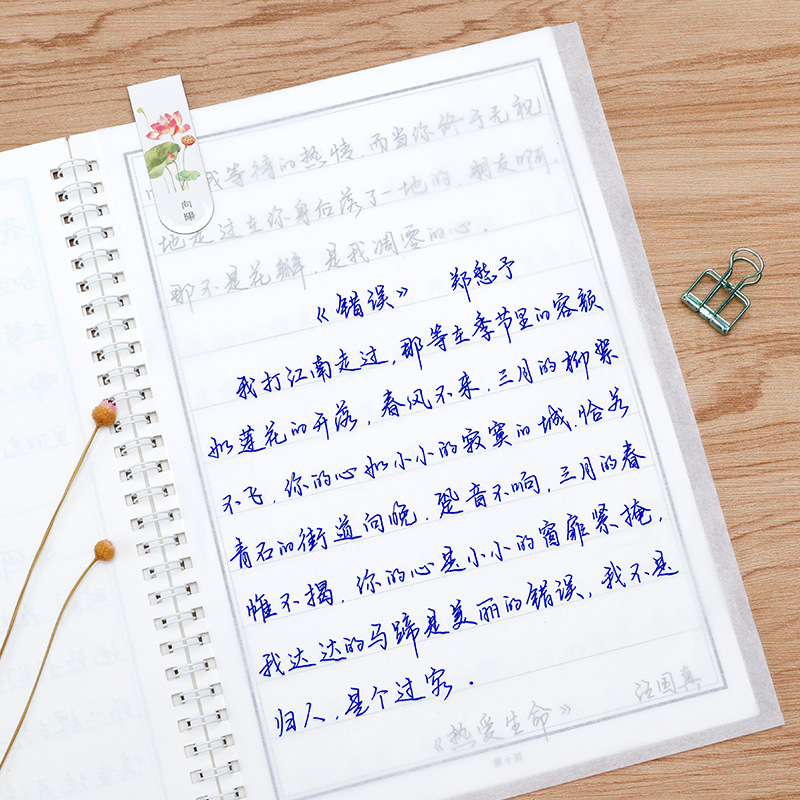 我等待的热情。而当你终于无视
地走过在你身后落了一地的,朋友啊,
那不是花瓣,是我凋零的心。
向陽
《错误》 郑愁予
我打江南走过,那等在季节里的容颜
如莲花的开落,春风不来,三月的柳絮
不飞,你的心如小小的寂寞的城,恰若
青石的街道向晚,跫音不响,三月的春
帷不揭,你的心是小小的窗扉紧掩,
我达达的马蹄是美丽的错误,我不是
归人,是个过客.
《热爱生命》 汪国真
第十页